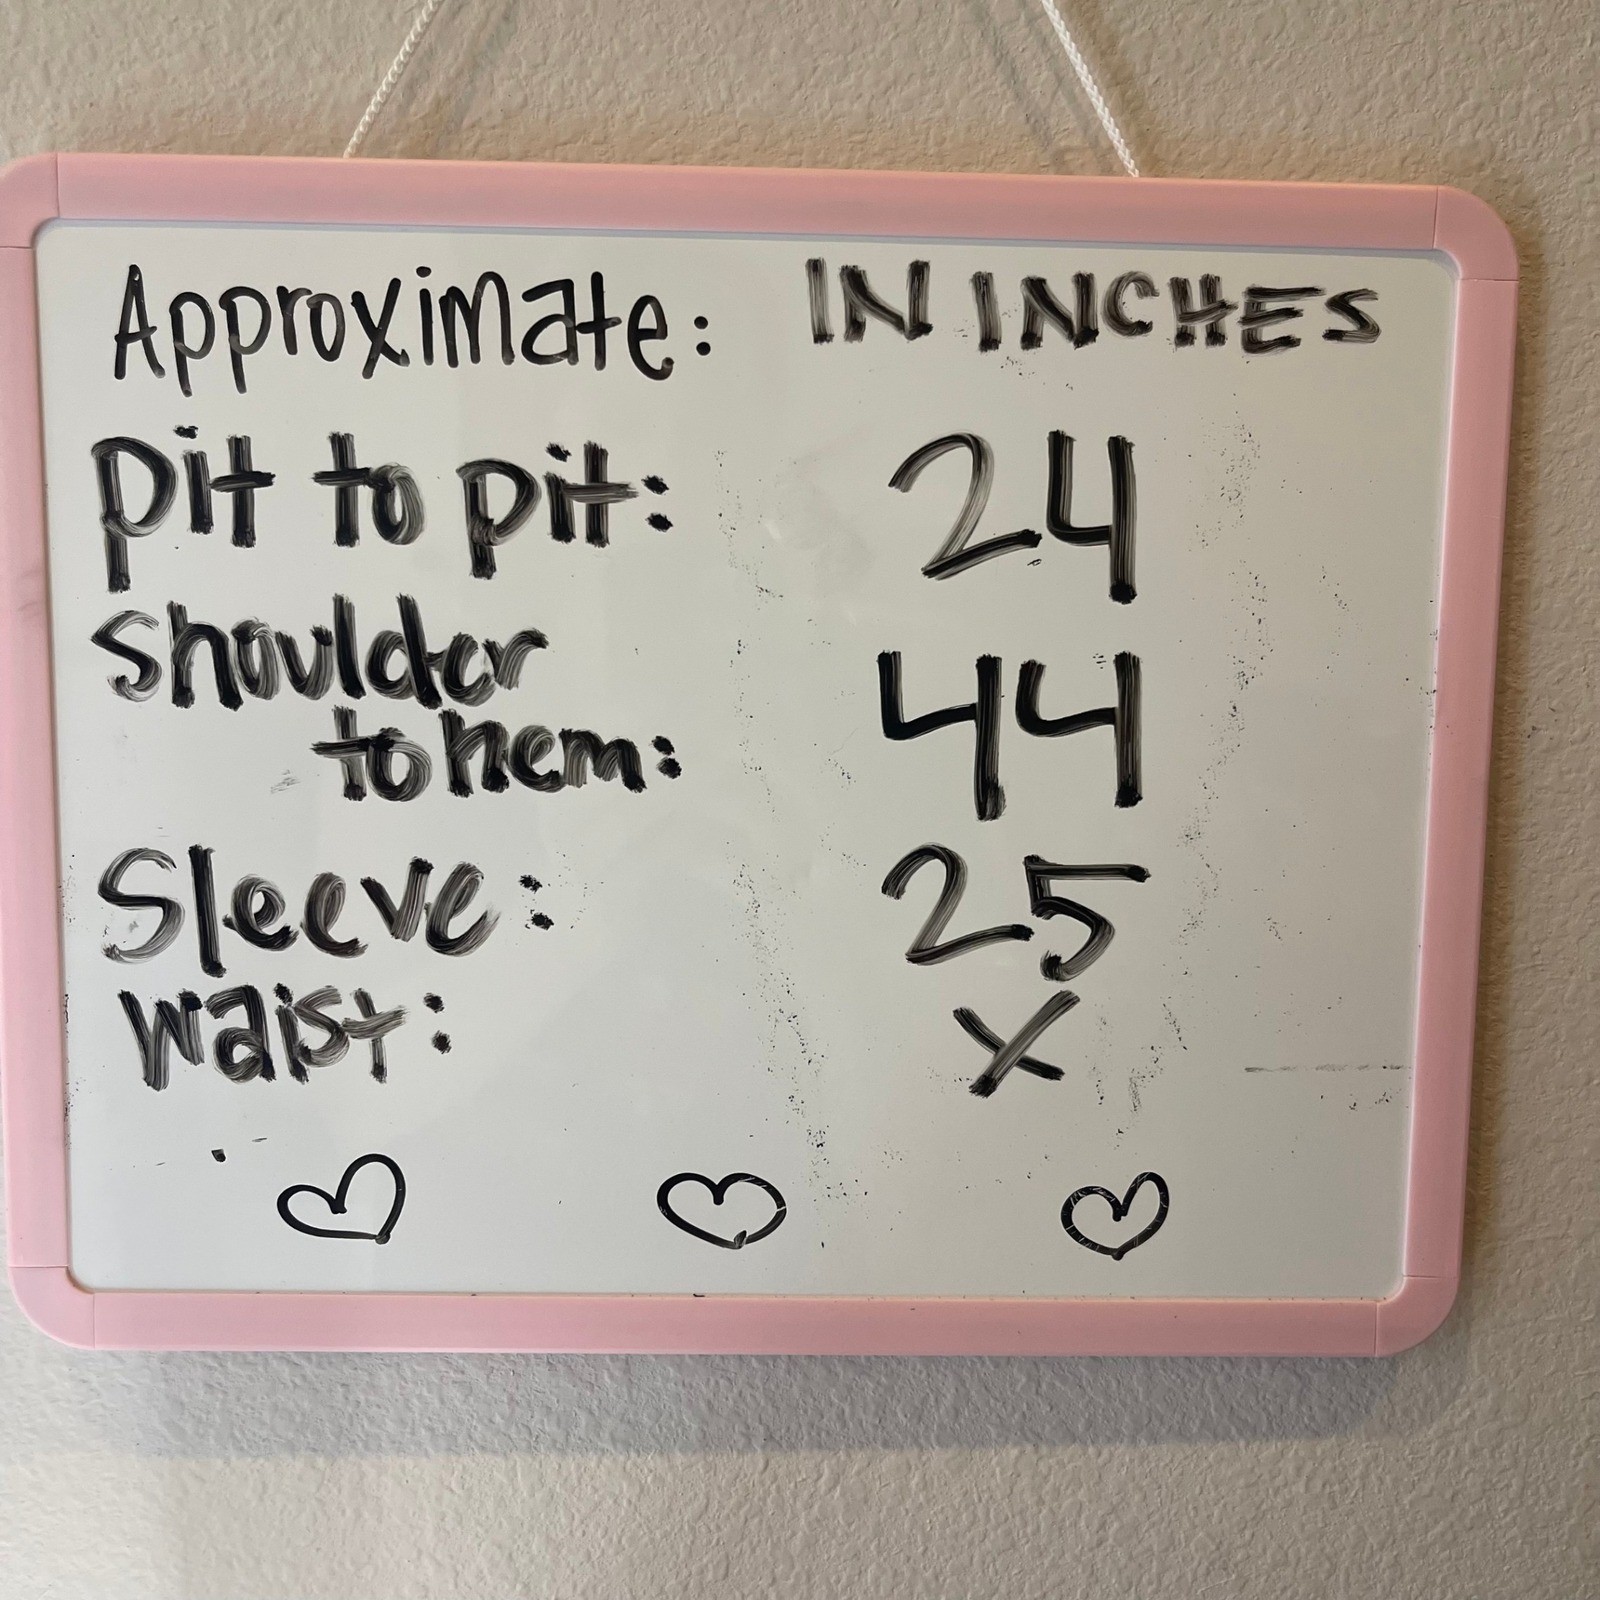 Approximate: IN INCHES
pit to pit: 24
Shoulder
to hem: 44
Sleeve: 25
waist: X